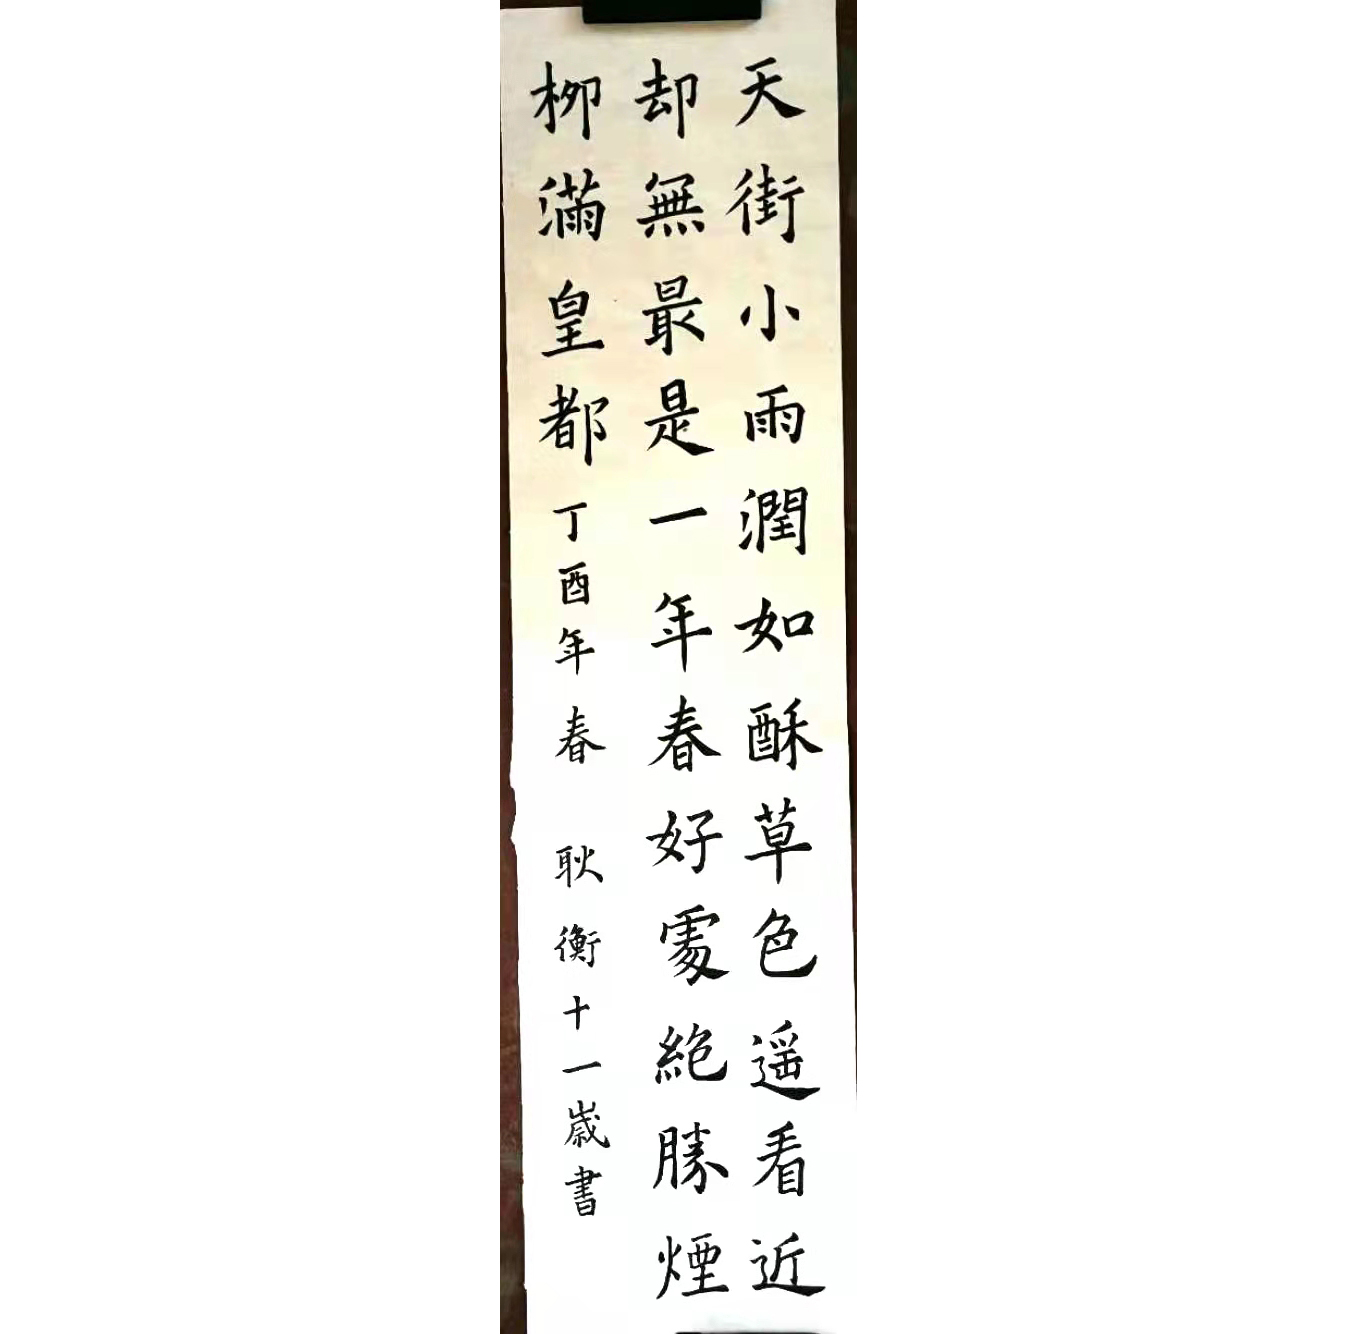 天街小雨潤如酥草色遥看近
却無最是一年春好處絕勝煙
柳滿皇都丁酉年春 耿衡十一歲書